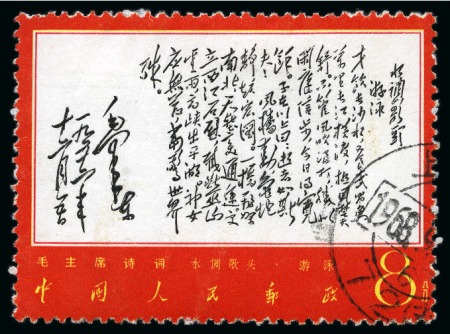 水调歌头
游泳
才饮长沙水又食武昌鱼
万里长江横渡极目楚天
舒不管风吹浪打胜似
闲庭信步今日得宽
余子在川上曰逝者如斯
夫风樯动龟蛇
静起宏图一桥飞架
南北天堑变通途更
立西江石壁截断巫山
云雨高峡出平湖神女
应无恙当惊世界
殊
毛泽东
一九五六年
十二月五日
毛主席诗词 水调歌头·游泳
中国人民邮政
8分
1968